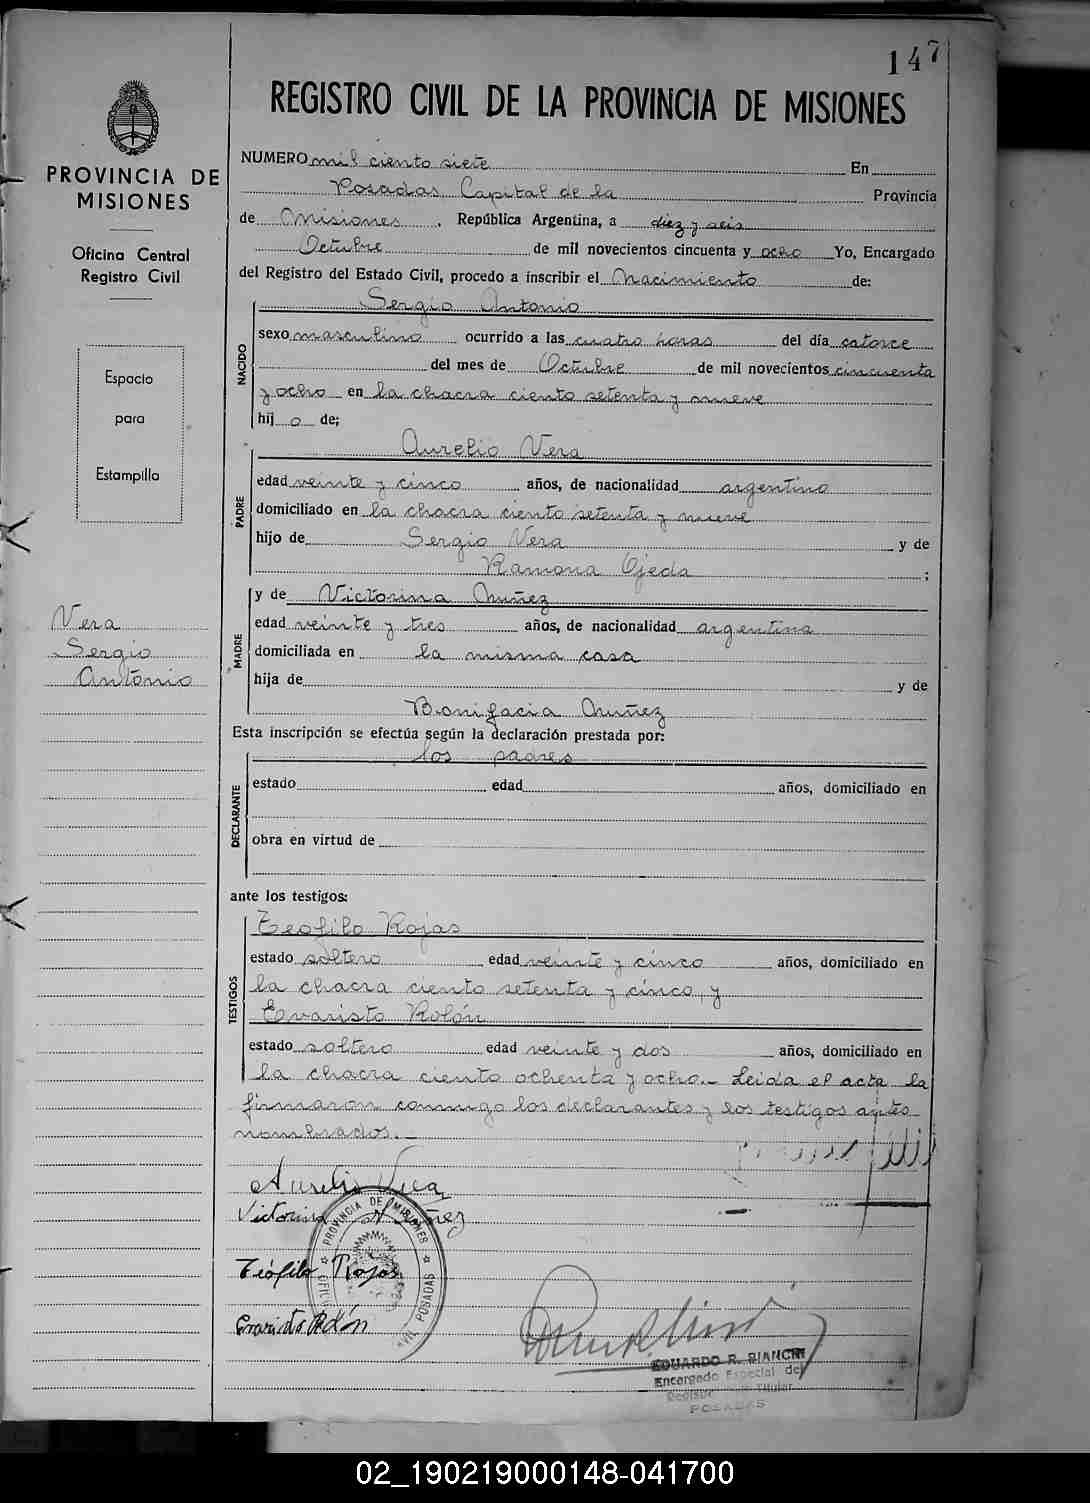 147
REGISTRO CIVIL DE LA PROVINCIA DE MISIONES
PROVINCIA DE
MISIONES
Oficina Central
Registro Civil
Espacio
para
Estampilla
Vera
Sergio
Antonio
NUMERO mil ciento siete En
Posadas Capital de la Provincia
de Misiones. República Argentina, a diez y seis
Octubre de mil novecientos cincuenta y ocho Yo, Encargado
del Registro del Estado Civil, procedo a inscribir el Nacimiento de:
NACIDO
Sergio Antonio
sexo masculino ocurrido a las cuatro horas del día catorce
del mes de Octubre de mil novecientos cincuenta
y ocho en la chacra ciento setenta y nueve
hij o de;
PADRE
Aurelio Vera
edad veinte y cinco años, de nacionalidad argentino
domiciliado en la chacra ciento setenta y nueve
hijo de Sergio Vera y de
Ramona Ojeda ;
MADRE
y de Victorina Nuñez
edad veinte y tres años, de nacionalidad argentina
domiciliada en la misma casa
hija de y de
Bonifacia Nuñez
Esta inscripción se efectúa según la declaración prestada por:
DECLARANTE
los padres
estado edad años, domiciliado en
obra en virtud de
ante los testigos:
TESTIGOS
Teofilo Rojas
estado soltero edad veinte y cinco años, domiciliado en
la chacra ciento setenta y cinco, y
Evaristo Rolón
estado soltero edad veinte y dos años, domiciliado en
la chacra ciento ochenta y ocho.- Leida el acta la
firmaron conmigo los declarantes y los testigos antes
nombrados.-
Aurelio Vera
Victorina Nuñez
Teófilo Rojas
Evaristo Rolón
PROVINCIA DE MISIONES
POSADAS
EDUARDO R. BIANCHI
Encargado Especial del
POSADAS
02_190219000148-041700